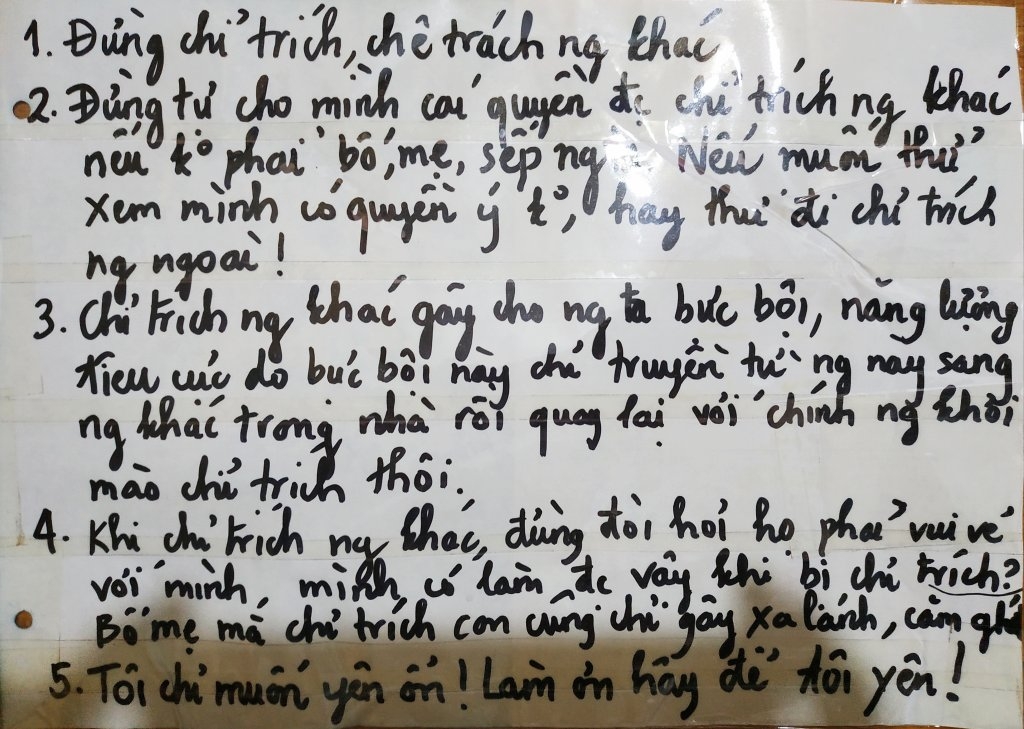 1. Đừng chỉ trích, chê trách ng khác
2. Đừng tự cho mình cái quyền đc chỉ trích ng khác
nếu ko phải bố, mẹ, sếp ng Nếu muốn thử
xem mình có quyền ý ko, hãy thử đi chỉ trích
ng ngoài!
3. Chỉ trích ng khác gây cho ng ta bức bội, năng lượng
tiêu cực do bức bội này chỉ truyền từ ng này sang
ng khác trong nhà rồi quay lại với chính ng khởi
mào chỉ trích thôi.
4. Khi chỉ trích ng khác, đừng đòi hỏi họ phải vui vẻ
với mình mình có làm đc vậy khi bị chỉ trích?
Bố mẹ mà chỉ trích con cũng chỉ gây xa lánh, căm ghé
5. Tôi chỉ muốn yên ổn! Làm ơn hãy để tôi yên!